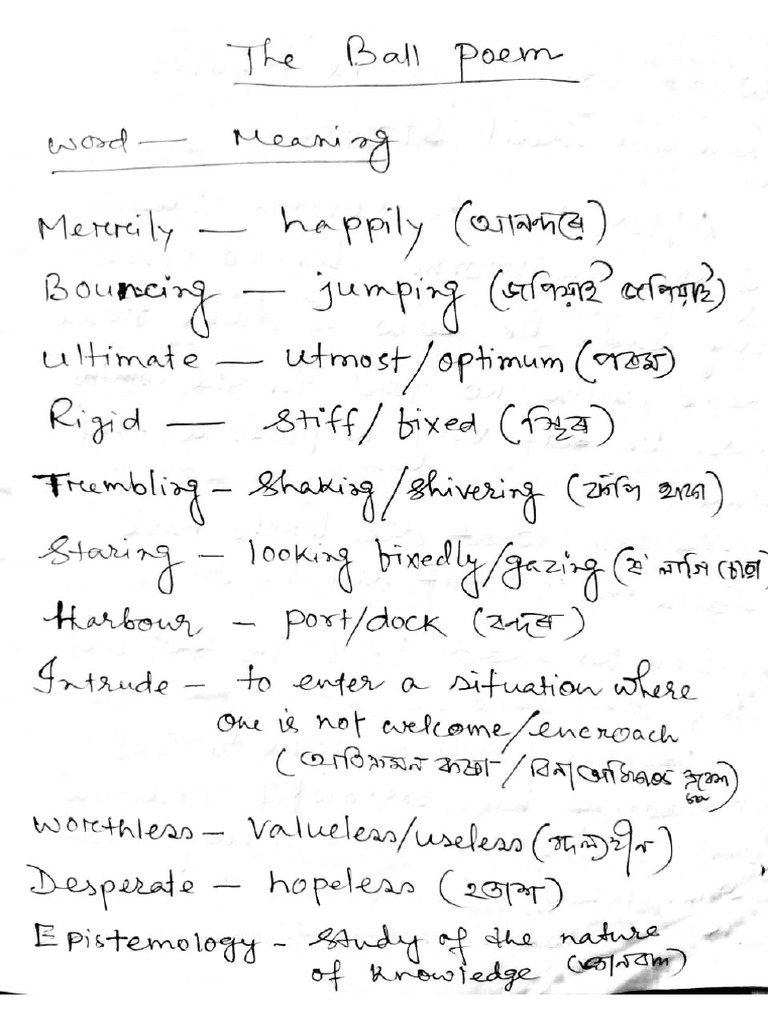 The Ball Poem
Word — Meaning
Merrily — happily (আনন্দৰে)
Bouncing — jumping (জপিয়াই জপিয়াই)
Ultimate — utmost/optimum (পৰম)
Rigid — stiff/fixed (স্থিৰ)
Trembling — shaking/shivering (কঁপি থকা)
Staring — looking fixedly/gazing (লাগি চোৱা
Harbour — port/dock (বন্দৰ)
Intrude — to enter a situation where
one is not welcome/encroach
Worthless — valueless/useless (মূল্যহীন)
Desperate — hopeless (হতাশ)
Epistemology - study of the nature
of knowledge